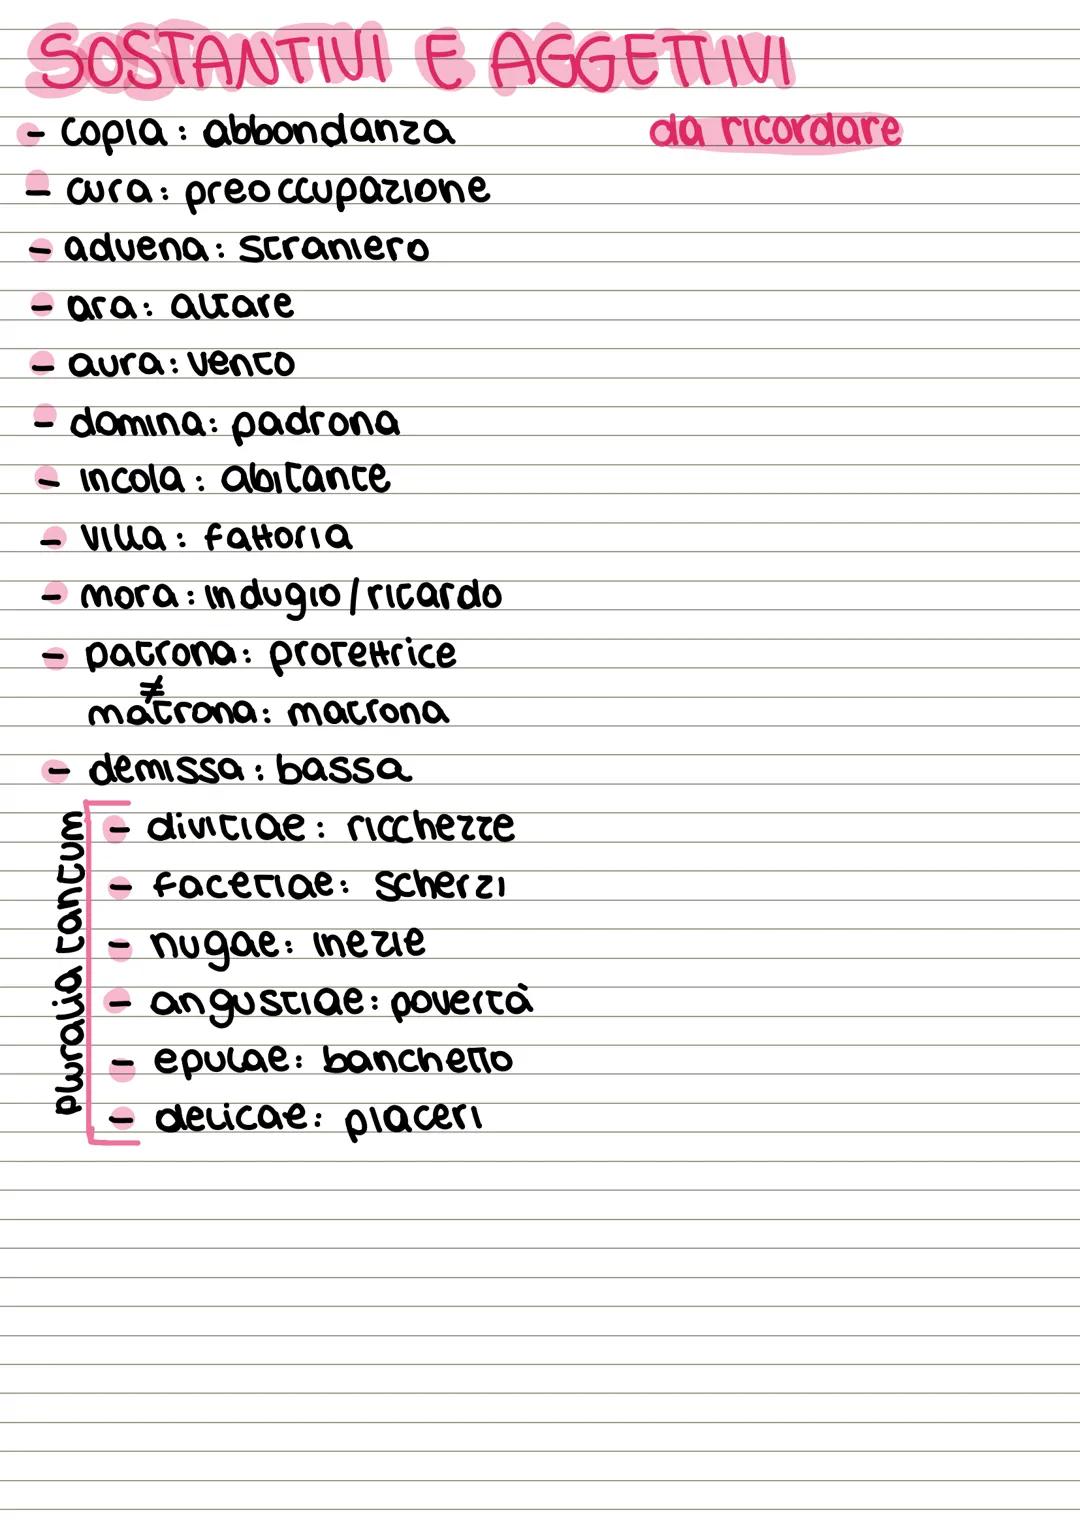 SOSTANTIVI E AGGETTIVI
da ricordare
- copia: abbondanza
- cura: preoccupazione
- advena: straniero
- ara: altare
- aura: vento
- domina: padrona
- incola: abitante
- villa: fattoria
- mora: indugio/ritardo
- patrona: protettrice
≠
matrona: matrona
- demissa: bassa
pluralia tantum
- divitiae: ricchezze
- facetiae: scherzi
- nugae: inezie
- angustiae: povertà
- epulae: banchetto
- delicae: piaceri